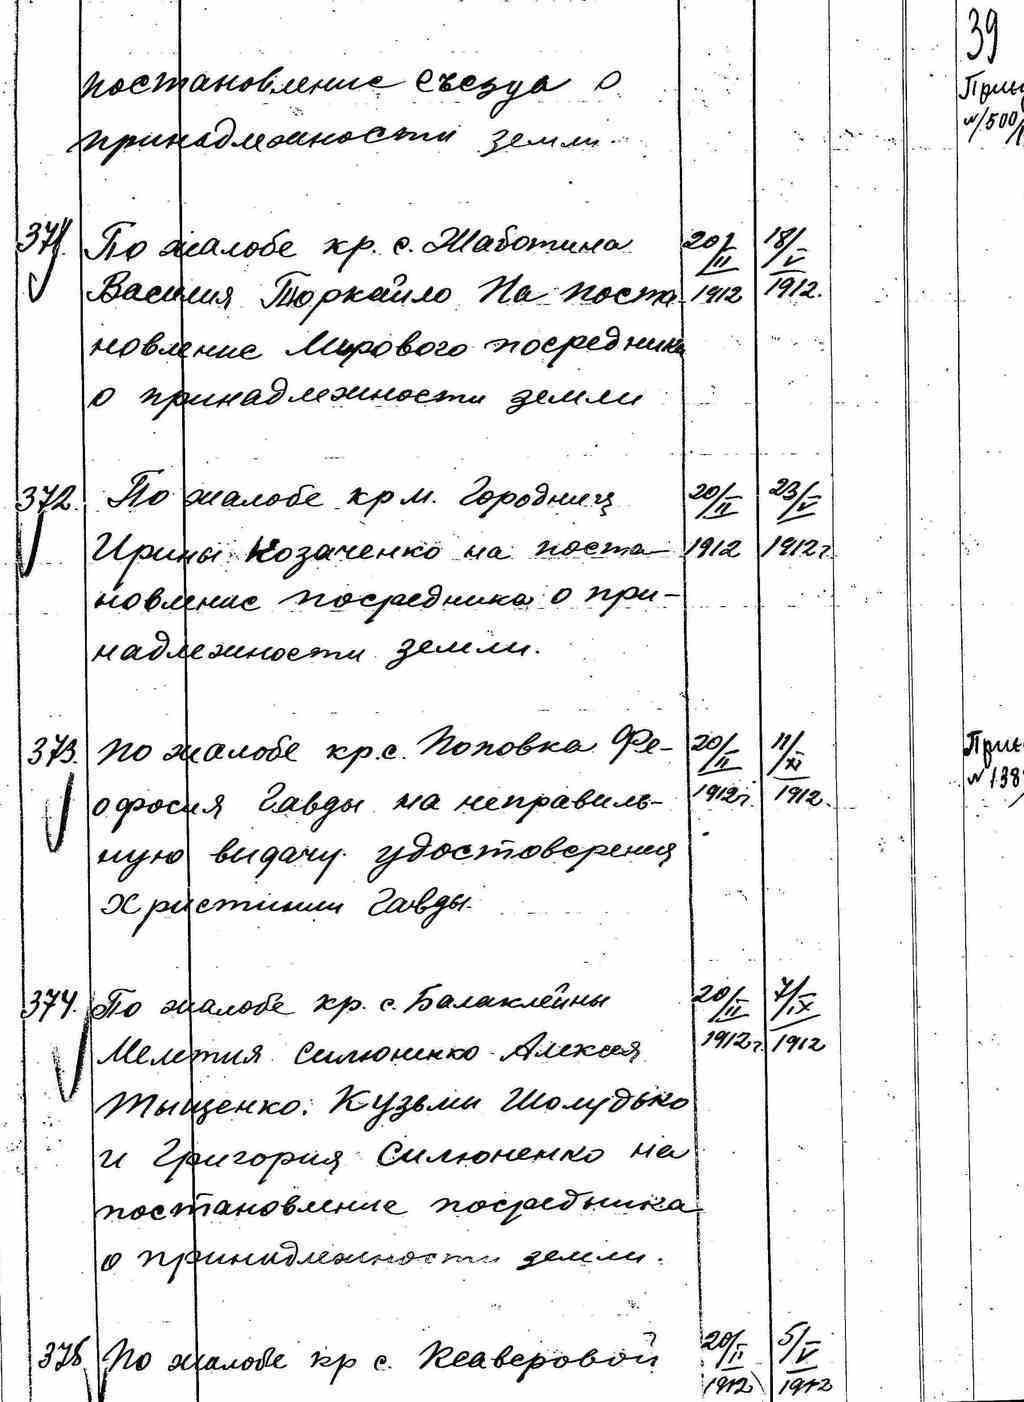 39
постановление съезда о
принадлежности земли.
371. По жалобе кр. с. Жаботина 20/II 18/V
Василия Торкайло На поста- 1912 1912.
новление Мирового посредника
о принадлежности земли
372. По жалобе кр м. Городищ 20/II 23/V
Ирины Козаченко на поста- 1912 1912 г.
новление посредника о при-
надлежности земли.
373. По жалобе кр. с. Поповка Фе- 20/II 11/XI
офосия Гавды на неправиль- 1912 г. 1912.
ную видачу удостоверения
Христинии Гавды.
374. По жалобе кр. с. Балаклейны 20/II 7/IX
Мелетия Силюненко Алексея 1912 г. 1912
Тыщенко. Кузьми Шолудько
и Григория Силюненко на
постановление посредника
о принадлежности земли.
375 По жалобе кр с. Ксаверовой 20/II 5/V
1912 1912